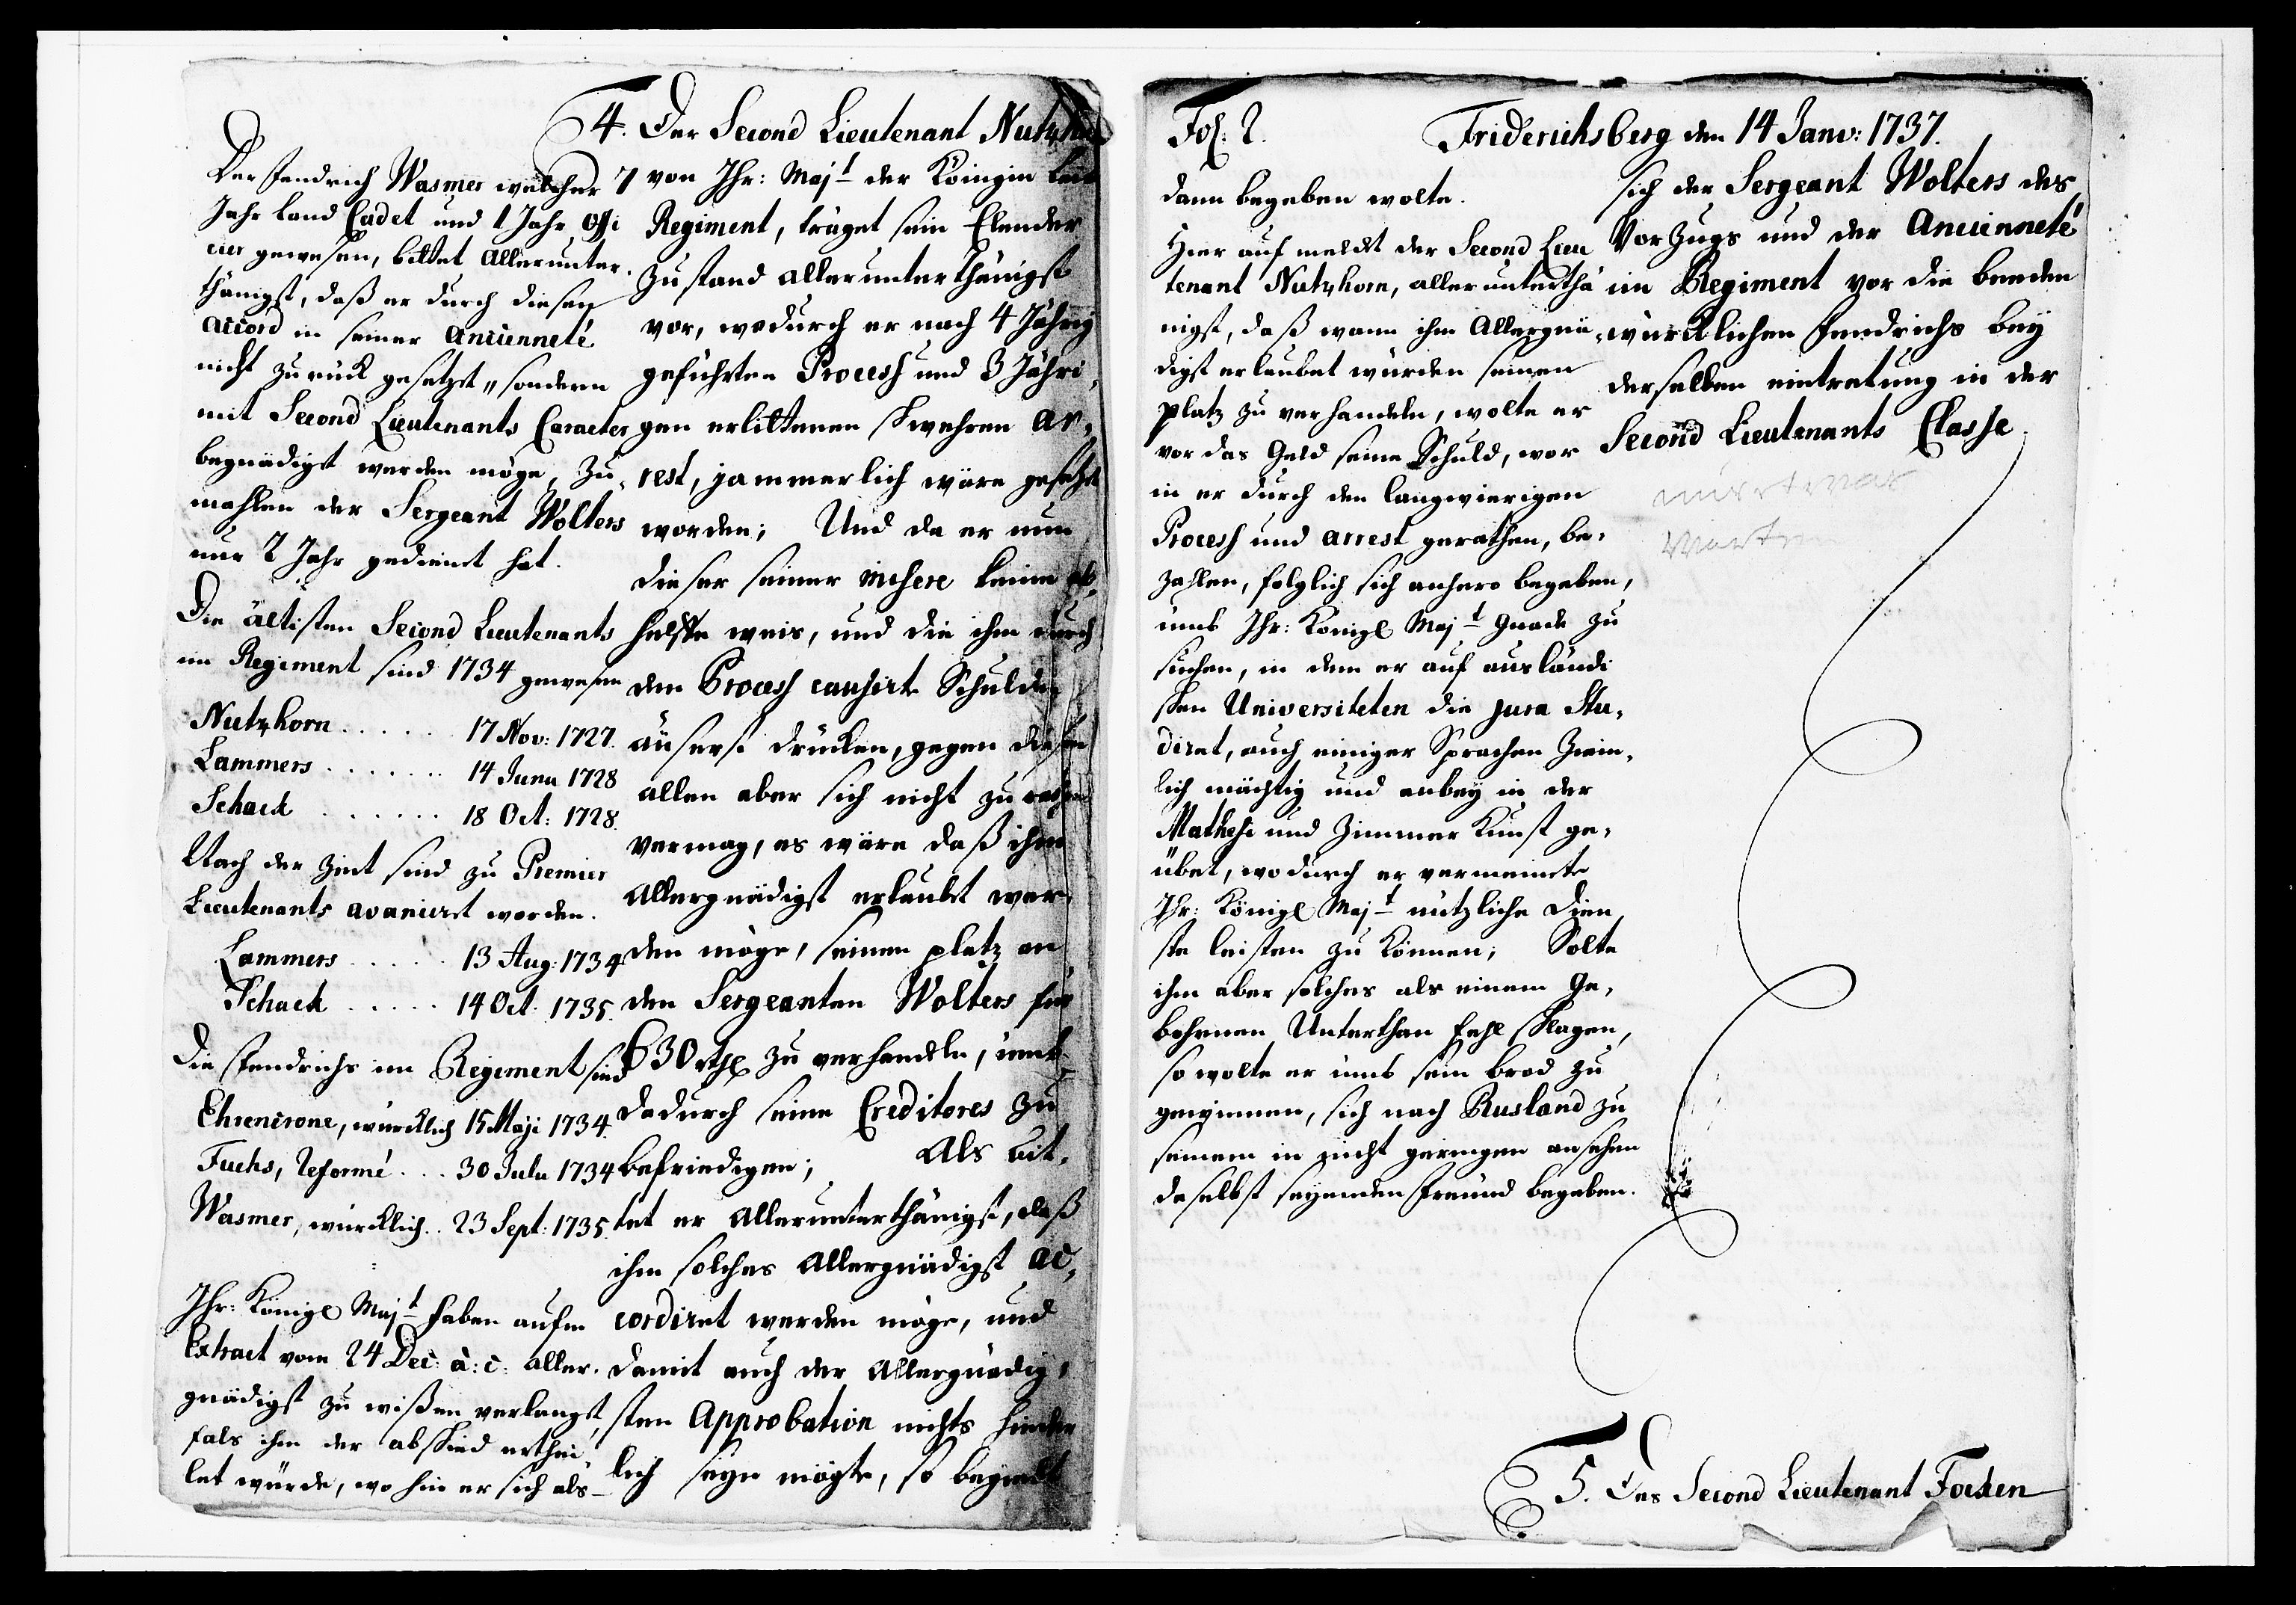 Der Fendrich Wasmer welcher 7
Jahr Land Cadet und 1 Jahr Offi
cier gewesen, bittet Allerunter-
thänigst, daß er durch diesen
accord in seiner Ancienneté
nicht zurück gesetzt, sondern
mit Second Lieutenants Caracter
begnädigt werden möge, Zu-
mahlen der Sergeant Wolters
nur 2 Jahr gedienet hat.
Die ältisten Second Lieutenants
im Regiment sind 1734 gewesen
Nutzhorn . . . . . . 17 Nov: 1727.
Lammers . . . . . . 14 Junii 1728
Schack . . . . . . 18 Oct: 1728.
Nach der Zeit sind zu Premier
Lieutenants avanciret worden.
Lammers . . . . . 13 Aug: 1734
Schack . . . . . 14 Oct: 1735.
Die Fendrichs im Regiment sind
Ehrencrone, würcklich 15 Maji 1734.
Fuchs, Reformé . . . 30 Julii 1734
Wasmer, würcklich . . 23 Sept: 1735
Ihr: Königl Majt haben aufm
Extract vom 24 Dec: a: c: aller-
gnädigst zu wißen verlangt,
fals ihm der abschied erthei
let würde, wo hin er sich als-
4. Der Second Lieutenant Nutzhorn
von Ihr: Majt der Königin Leib
Regiment, träget sein Elender
Zustand allerunterthänigst
vor, wodurch er nach 4 Jährig
geführten Process und 3 Jähri-
gen erlittenen schwehren Ar-
rest, jammerlich wäre gesetzt
worden; Und da er nun
dieser seiner misere keine ab-
helffe weis, und die ihm durch
den Process causirte Schulden
äuserst drücken, gegen diesen
allen aber sich nicht zu rathen
vermag, es wäre daß ihm
Allergnädigst erlaubt wer-
den möge, seinen platz an
den Sergeanten Wolters für
630 rthl zu verhandeln, umb
dadurch seine Creditores zu
befriedigen; Als bit-
tet er Allerunterthänigst, daß
ihm solches Allergnädigst ac-
cordiret werden möge, und
damit auch der Allergnädig-
sten Approbation nichts hinder
lich seyn mögte, so begiebt
Fol: 2. Friderichsberg den 14 Janv: 1737.
dann begeben wolte.
Hier auf meldet der Second Lieu
tenant Nutzhorn, allerunterthä
nigst, daß wann ihm Allergnä-
digst erlaubet würden seinen
platz zu verhandeln, wolte er
vor das Geld seine Schuld, wor
in er durch den langwierigen
Process und arrest gerathen, be-
zahlen, folglich sich anhero begeben,
umb Ihr: Königl Majt Gnade zu
suchen, in dem er auf ausländi
schen Universiteten die jura stu-
diret, auch einiger Sprachen Ziem-
lich mächtig und anbey in der
Mathesi und Zimmer Kunst ge-
übet, wodurch er vermeinete
Ihr: Königl Majt nützliche Dien-
ste leisten zu können; Solte
ihm aber solches als einem Ge-
bohrnen Unterthan fehl schlagen,
so wolte er umb sein brod zu
gewinnen, sich nach Rusland zu
seinem in nicht geringen ansehen
daselbst seyenden Freund begeben.
sich der Sergeant Wolters des
Vorzugs und der Ancienneté
im Regiment vor die beeden
würcklichen Fendrichs bey
derselben eintretung in der
Second Lieutenants Classe.
5. Des Second Lieutenant Focken